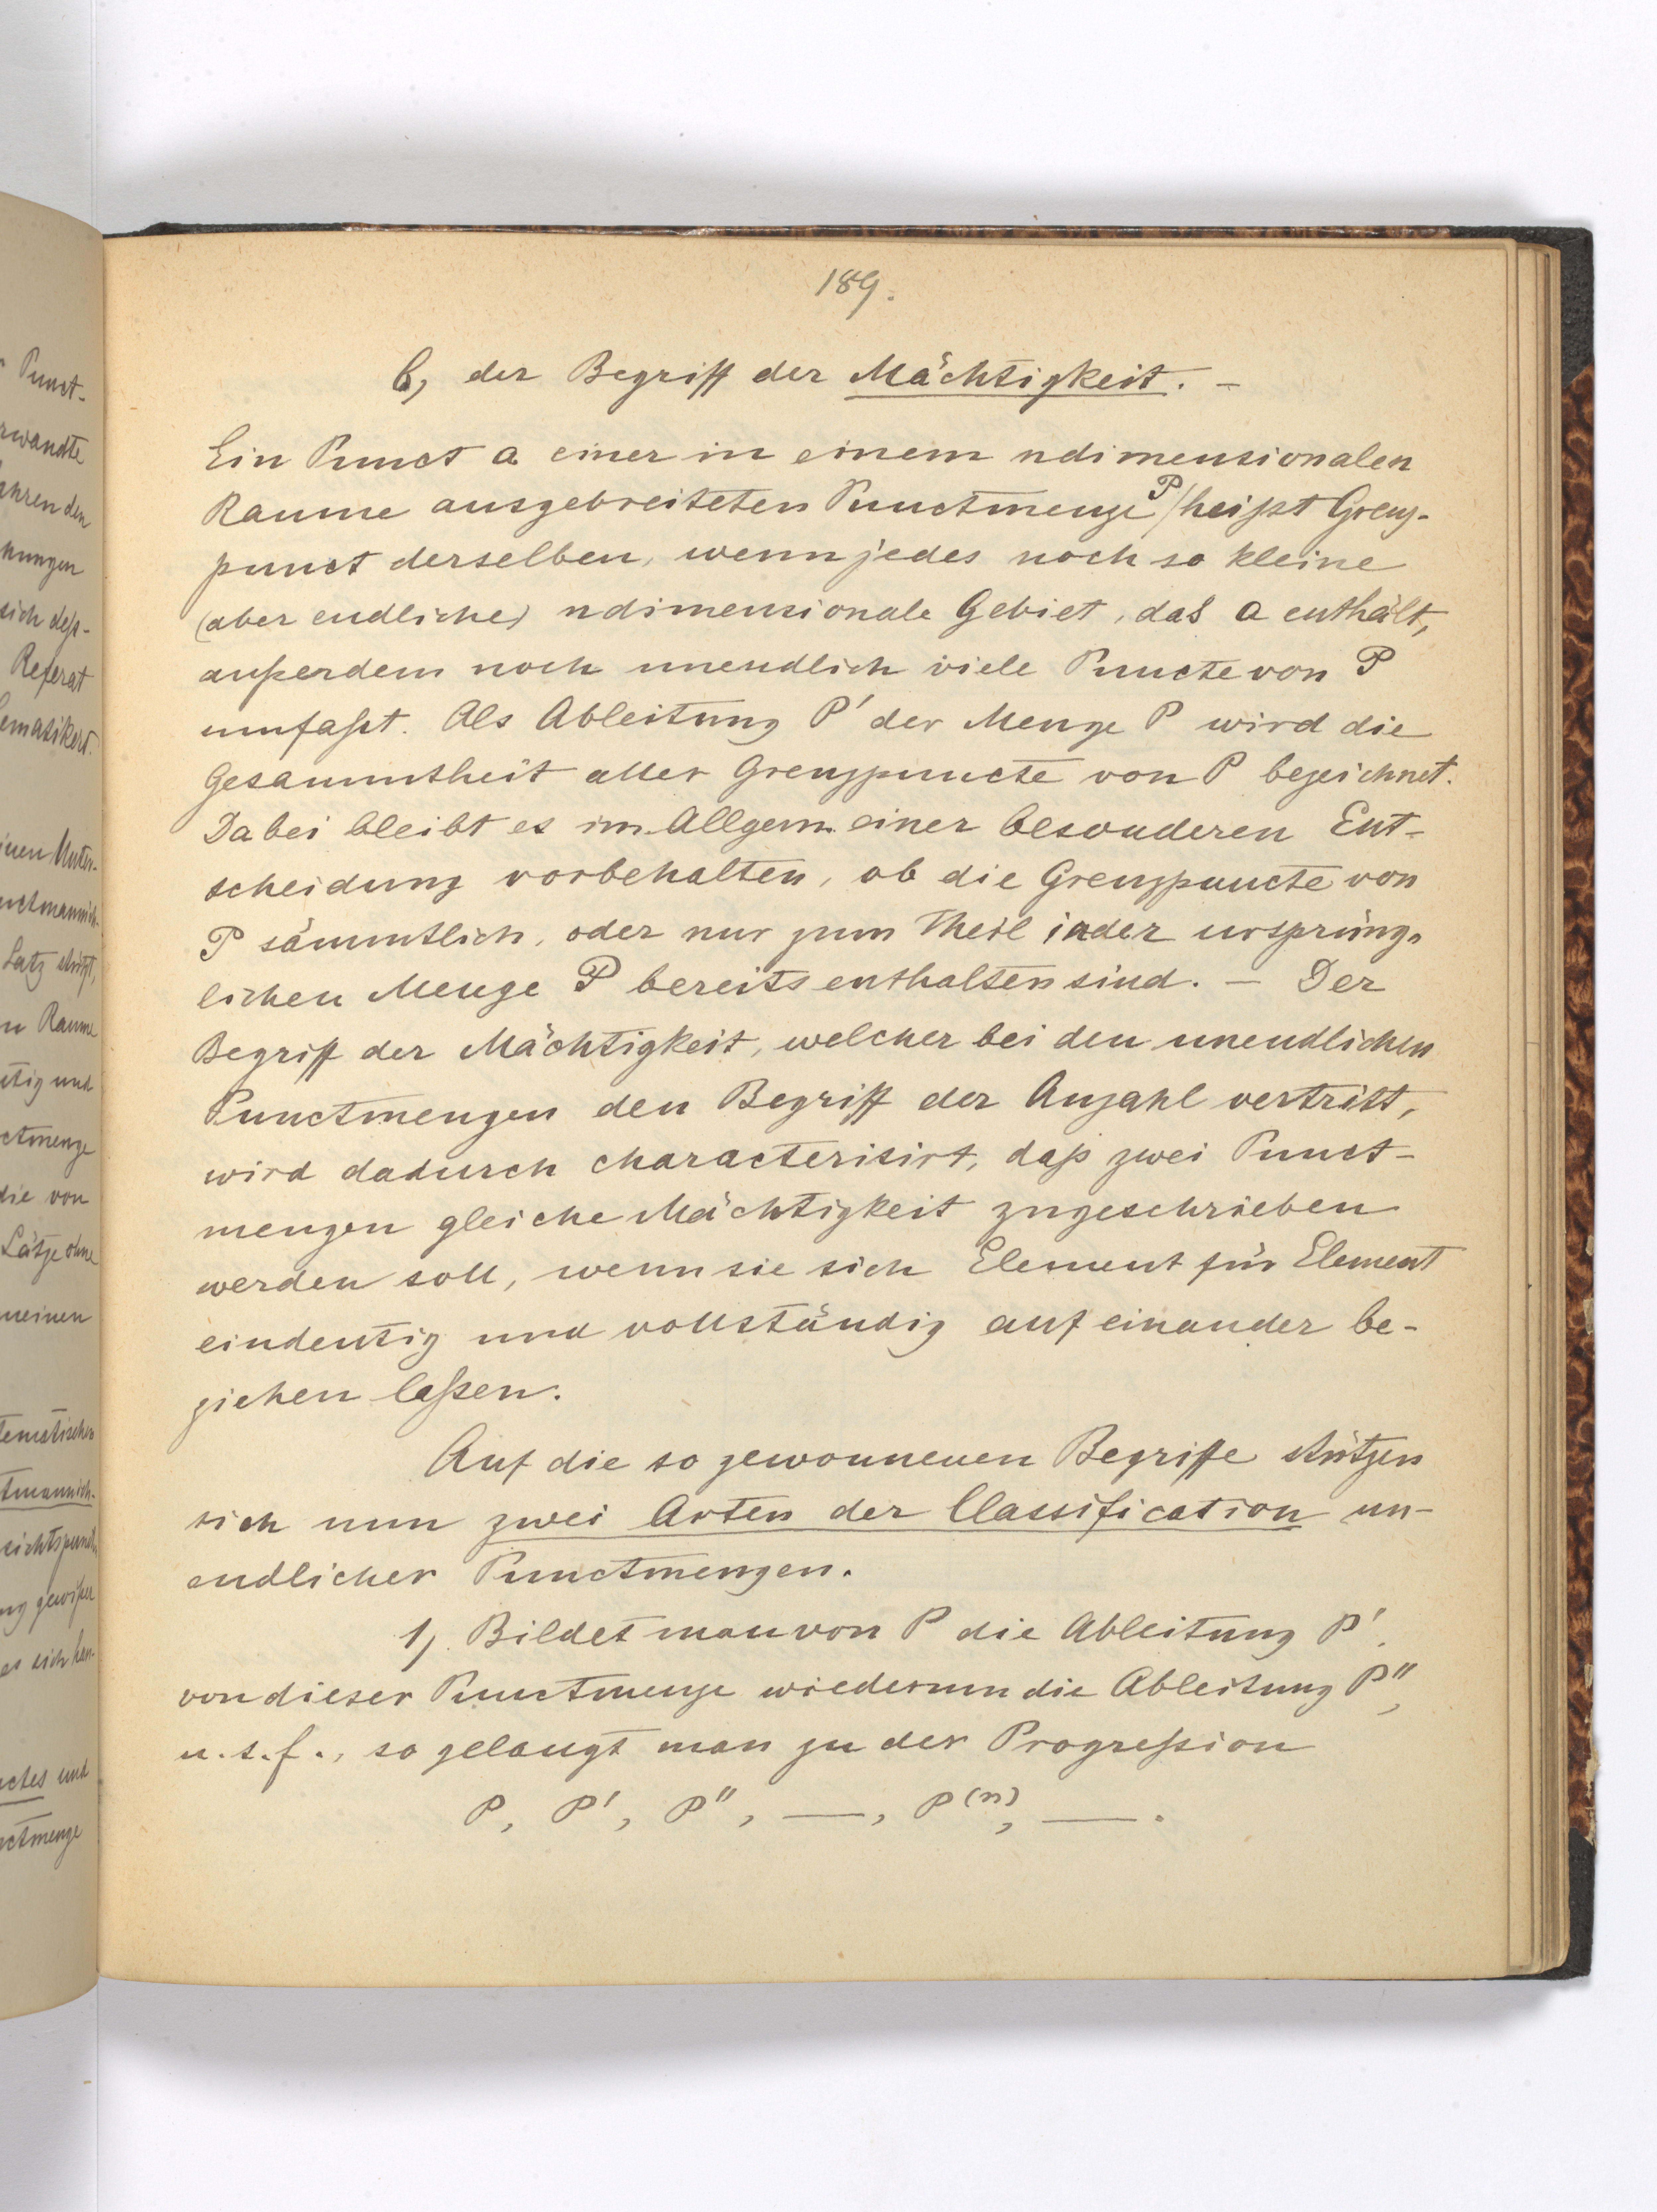 189.
b, der Begriff der Mächtigkeit. –
Ein Punct a einer in einem ndimensionalen
Raume ausgebreiteten Punctmenge P / heißt Grenz-
punct derselben, wenn jedes noch so kleine
(aber endliche) ndimensionale Gebiet, das a enthält,
außerdem noch unendlich viele Puncte von P
umfaßt. Als Ableitung P' der Menge P wird die
Gesammtheit aller Grenzpuncte von P bezeichnet.
Dabei bleibt es im Allgem. einer besonderen Ent-
scheidung vorbehalten, ob die Grenzpuncte von
P sämmtlich, oder nur zum Theil in der ursprüng-
lichen Menge P bereits enthalten sind. – Der
Begriff der Mächtigkeit, welcher bei den unendlichen
Punctmengen den Begriff der Anzahl vertritt,
wird dadurch characterisirt, daß zwei Punct-
mengen gleiche Mächtigkeit zugeschrieben
werden soll, wenn sie sich Element für Element
eindeutig und vollständig auf einander be-
ziehen laßen.
Auf die so gewonnenen Begriffe stützen
sich nun zwei Arten der Classification un-
endlicher Punctmengen.
1, Bildet man von P die Ableitung P',
von dieser Punctmenge wiederum die Ableitung P'',
u. s. f., so gelangt man zu der Progreßion
P, P', P'', —, P(n), —.
Punct-
rwandte
ahren den
nungen
sich deß-
Referat
ematikert.
inen Unter-
nctmannich-
Satz stützt,
n Raume
utig und
ctmenge
die von
Sätze ohne
meinen
tematischen
tmannich-
ng gewißer
es sich han-
nctes und
nctmenge